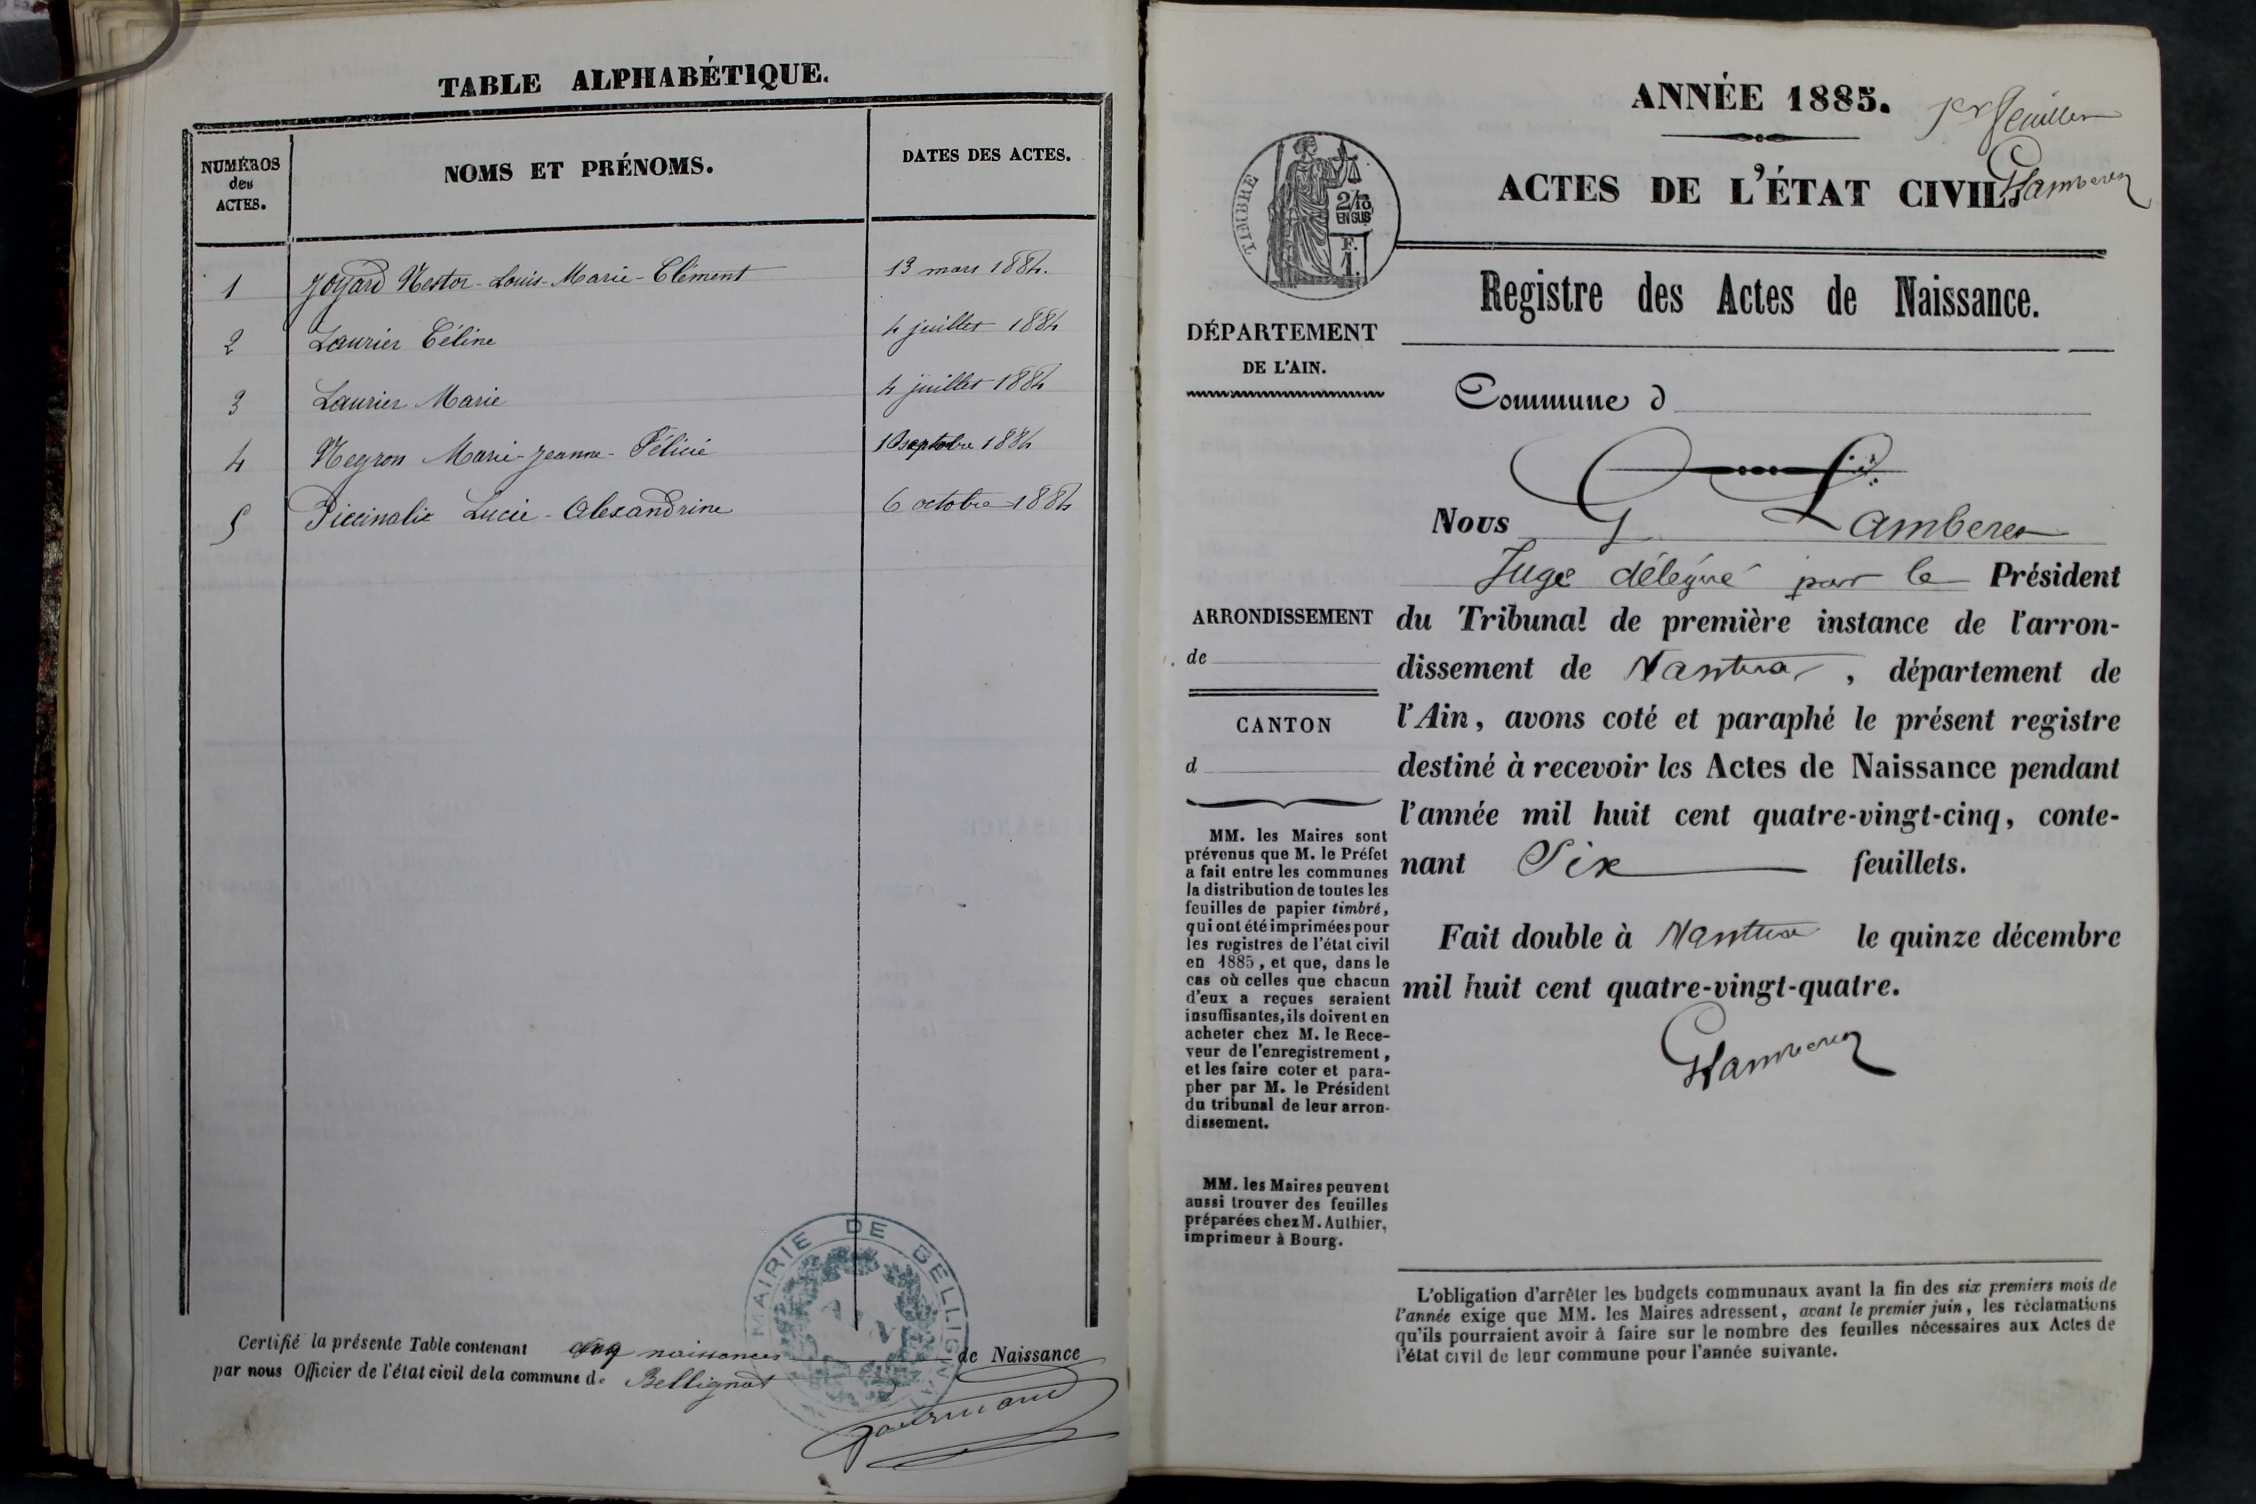 TABLE ALPHABÉTIQUE.
NUMÉROS
des
ACTES.
NOMS ET PRÉNOMS.
DATES DES ACTES.
1 Joyard Nestor-Louis-Marie-Clément 13 mars 1884.
2 Laurier Céline 4 juillet 1884
3 Laurier Marie 4 juillet 1884
4 Neyron Marie-Jeanne-Félicie septbre 1884
5 Piccinalie Lucie-Alexandrine 6 octobre 1884
Certifié la présente Table contenant cinq naissances de Naissance
par nous Officier de l'état civil de la commune de Bellignat
MAIRIE DE BELLIGNAT
AIN
ANNÉE 1885.
1er feuillet
ACTES DE L'ÉTAT CIVIL.
TIMBRE
2/10
EN SUS
F.
1.
Registre des Actes de Naissance.
DÉPARTEMENT
DE L'AIN.
Commune d
Nous G. Lamberet
Juge délégué par le Président
du Tribunal de première instance de l'arron-
dissement de Nantua, département de
l'Ain, avons coté et paraphé le présent registre
destiné à recevoir les Actes de Naissance pendant
l'année mil huit cent quatre-vingt-cinq, conte-
nant Six feuillets.
Fait double à Nantua le quinze décembre
mil huit cent quatre-vingt-quatre.
GLamberet
ARRONDISSEMENT
de
CANTON
d
MM. les Maires sont
prévenus que M. le Préfet
a fait entre les communes
la distribution de toutes les
feuilles de papier timbré,
qui ont été imprimées pour
les registres de l'état civil
en 1885, et que, dans le
cas où celles que chacun
d'eux a reçues seraient
insuffisantes, ils doivent en
acheter chez M. le Rece-
veur de l'enregistrement,
et les faire coter et para-
pher par M. le Président
du tribunal de leur arron-
dissement.
MM. les Maires peuvent
aussi trouver des feuilles
préparées chez M. Authier,
imprimeur à Bourg.
L'obligation d'arrêter les budgets communaux avant la fin des six premiers mois de
l'année exige que MM. les Maires adressent, avant le premier juin, les réclamations
qu'ils pourraient avoir à faire sur le nombre des feuilles nécessaires aux Actes de
l'état civil de leur commune pour l'année suivante.